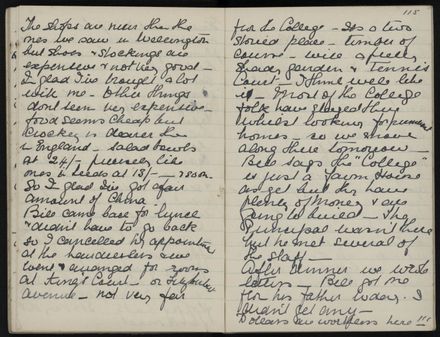 The shops are nicer than the
ones we saw in Wellington
but shoes & stockings are
expensive & not very good -
I'm glad I've brought a lot
with me - Other things
don't seem very expensive -
food seems cheap but
crockery is dearer than
in England - salad bowls
at 24/- precisely like
ones in Leeds at 15/-
So I'm glad I've got a fair
amount of China.
Bill came back for lunch
& didn't have to go back
so I cancelled my appointment
at the hairdressers and
went & arranged for rooms
at King's Court - or
avenue - not very far
115
from the College - It's a two
storied place - timber of
course - with a nice
shady garden & tennis
Court - I think we'll like
it - Most of the College
folk have stayed there
whilst looking for permanent
homes - so we move
along there tomorrow -
Bill says the "College"
is just a farm house
as yet but they have
plenty of money & are
going to build - The
Principal wasn't there
but he met several of
the staff -
After dinner we wrote
letters - Bill got one
from his father today. I
didn't get any -
Dollars are worthless here !!!